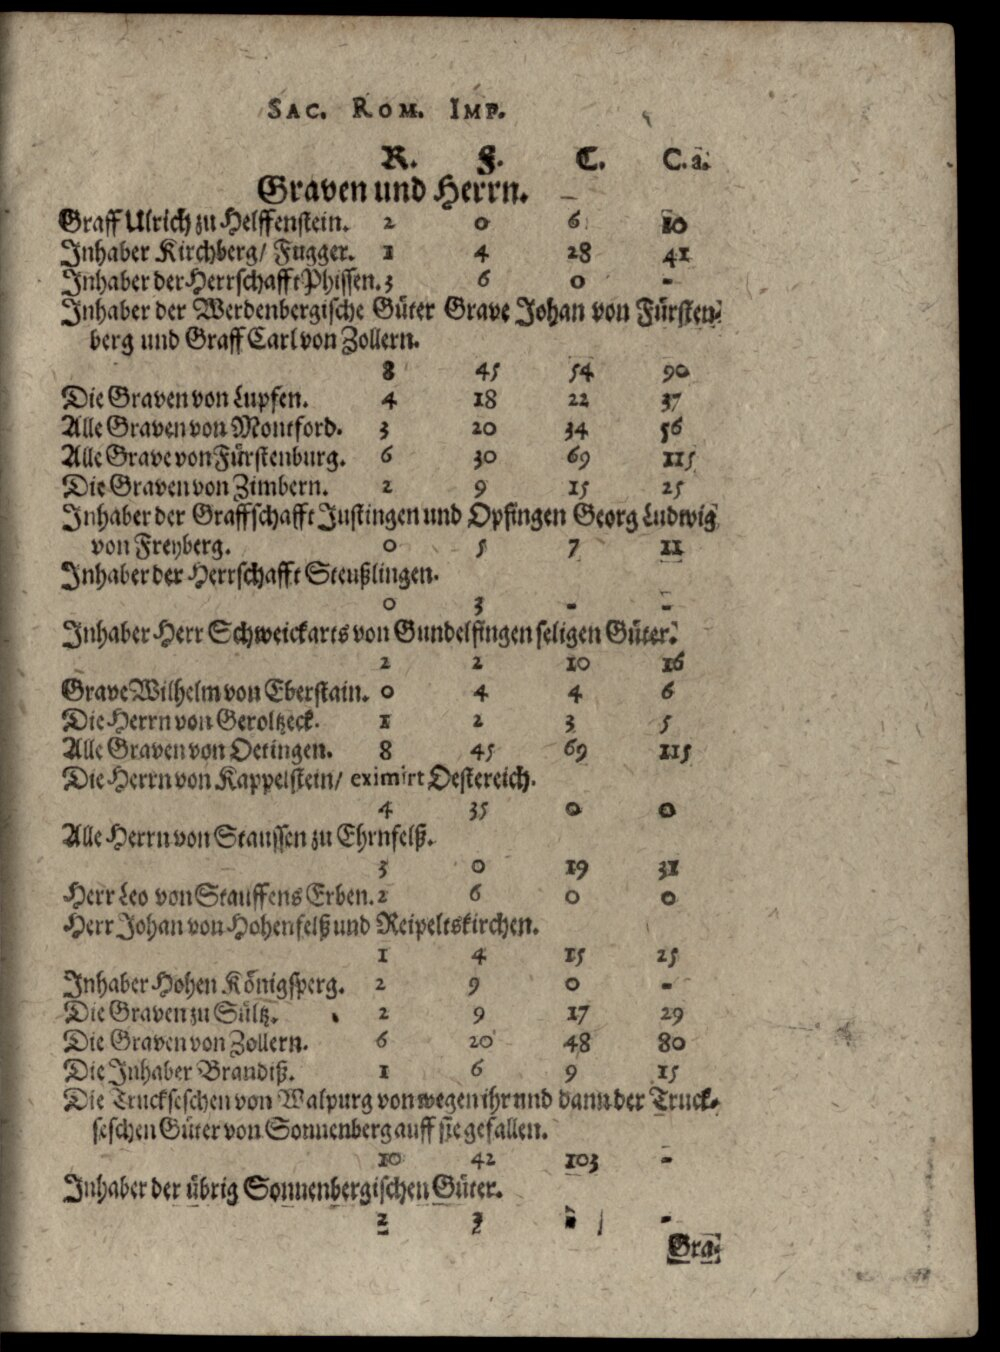 SAC. ROM. IMP.
R. F. C. C. a.
Graven und Herrn.
Graff Ulrich zu Helffenstein. 2 0 6 10
Inhaber Kirchberg/ Fugger. 1 4 28 41
Inhaber der Herrschafft Phissen. 3 6 0 -
Inhaber der Werdenbergische Güter Grave Johan von Fürsten-
berg und Graff Carl von Zollern.
8 45 54 90
Die Graven von Lupfen. 4 18 22 37
Alle Graven von Montford. 3 20 34 56
Alle Grave von Fürstenburg. 6 30 69 115
Die Graven von Zimbern. 2 9 15 25
Inhaber der Graffschafft Justingen und Opfingen Georg Ludwig
von Freyberg. 0 5 7 11
Inhaber der Herrschafft Steußlingen.
0 3 - -
Inhaber Herr Schweickarts von Gundelfingen seligen Güter.
2 2 10 16
Grave Wilhelm von Eberstain. 0 4 4 6
Die Herrn von Geroltzeck. 1 2 3 5
Alle Graven von Oetingen. 8 45 69 115
Die Herrn von Kappelstein/ eximirt Oestereich.
4 35 0 0
Alle Herrn von Staussen zu Ehrnfelß.
3 0 19 31
Herr Leo von Stauffens Erben. 2 6 0 0
Herr Johan von Hohenfelß und Reipeltskirchen.
1 4 15 25
Inhaber Hohen Königsperg. 2 9 0 -
Die Graven zu Sültz. 2 9 17 29
Die Graven von Zollern. 6 20 48 80
Die Inhaber Brandiß. 1 6 9 15
Die Truckseschen von Walpurg von wegen ihr und dann der Truck-
seschen Güter von Sonnenberg auff sie gefallen.
10 42 103 -
Inhaber der übrig Sonnenbergischen Güter.
2 3 - -
Gra-